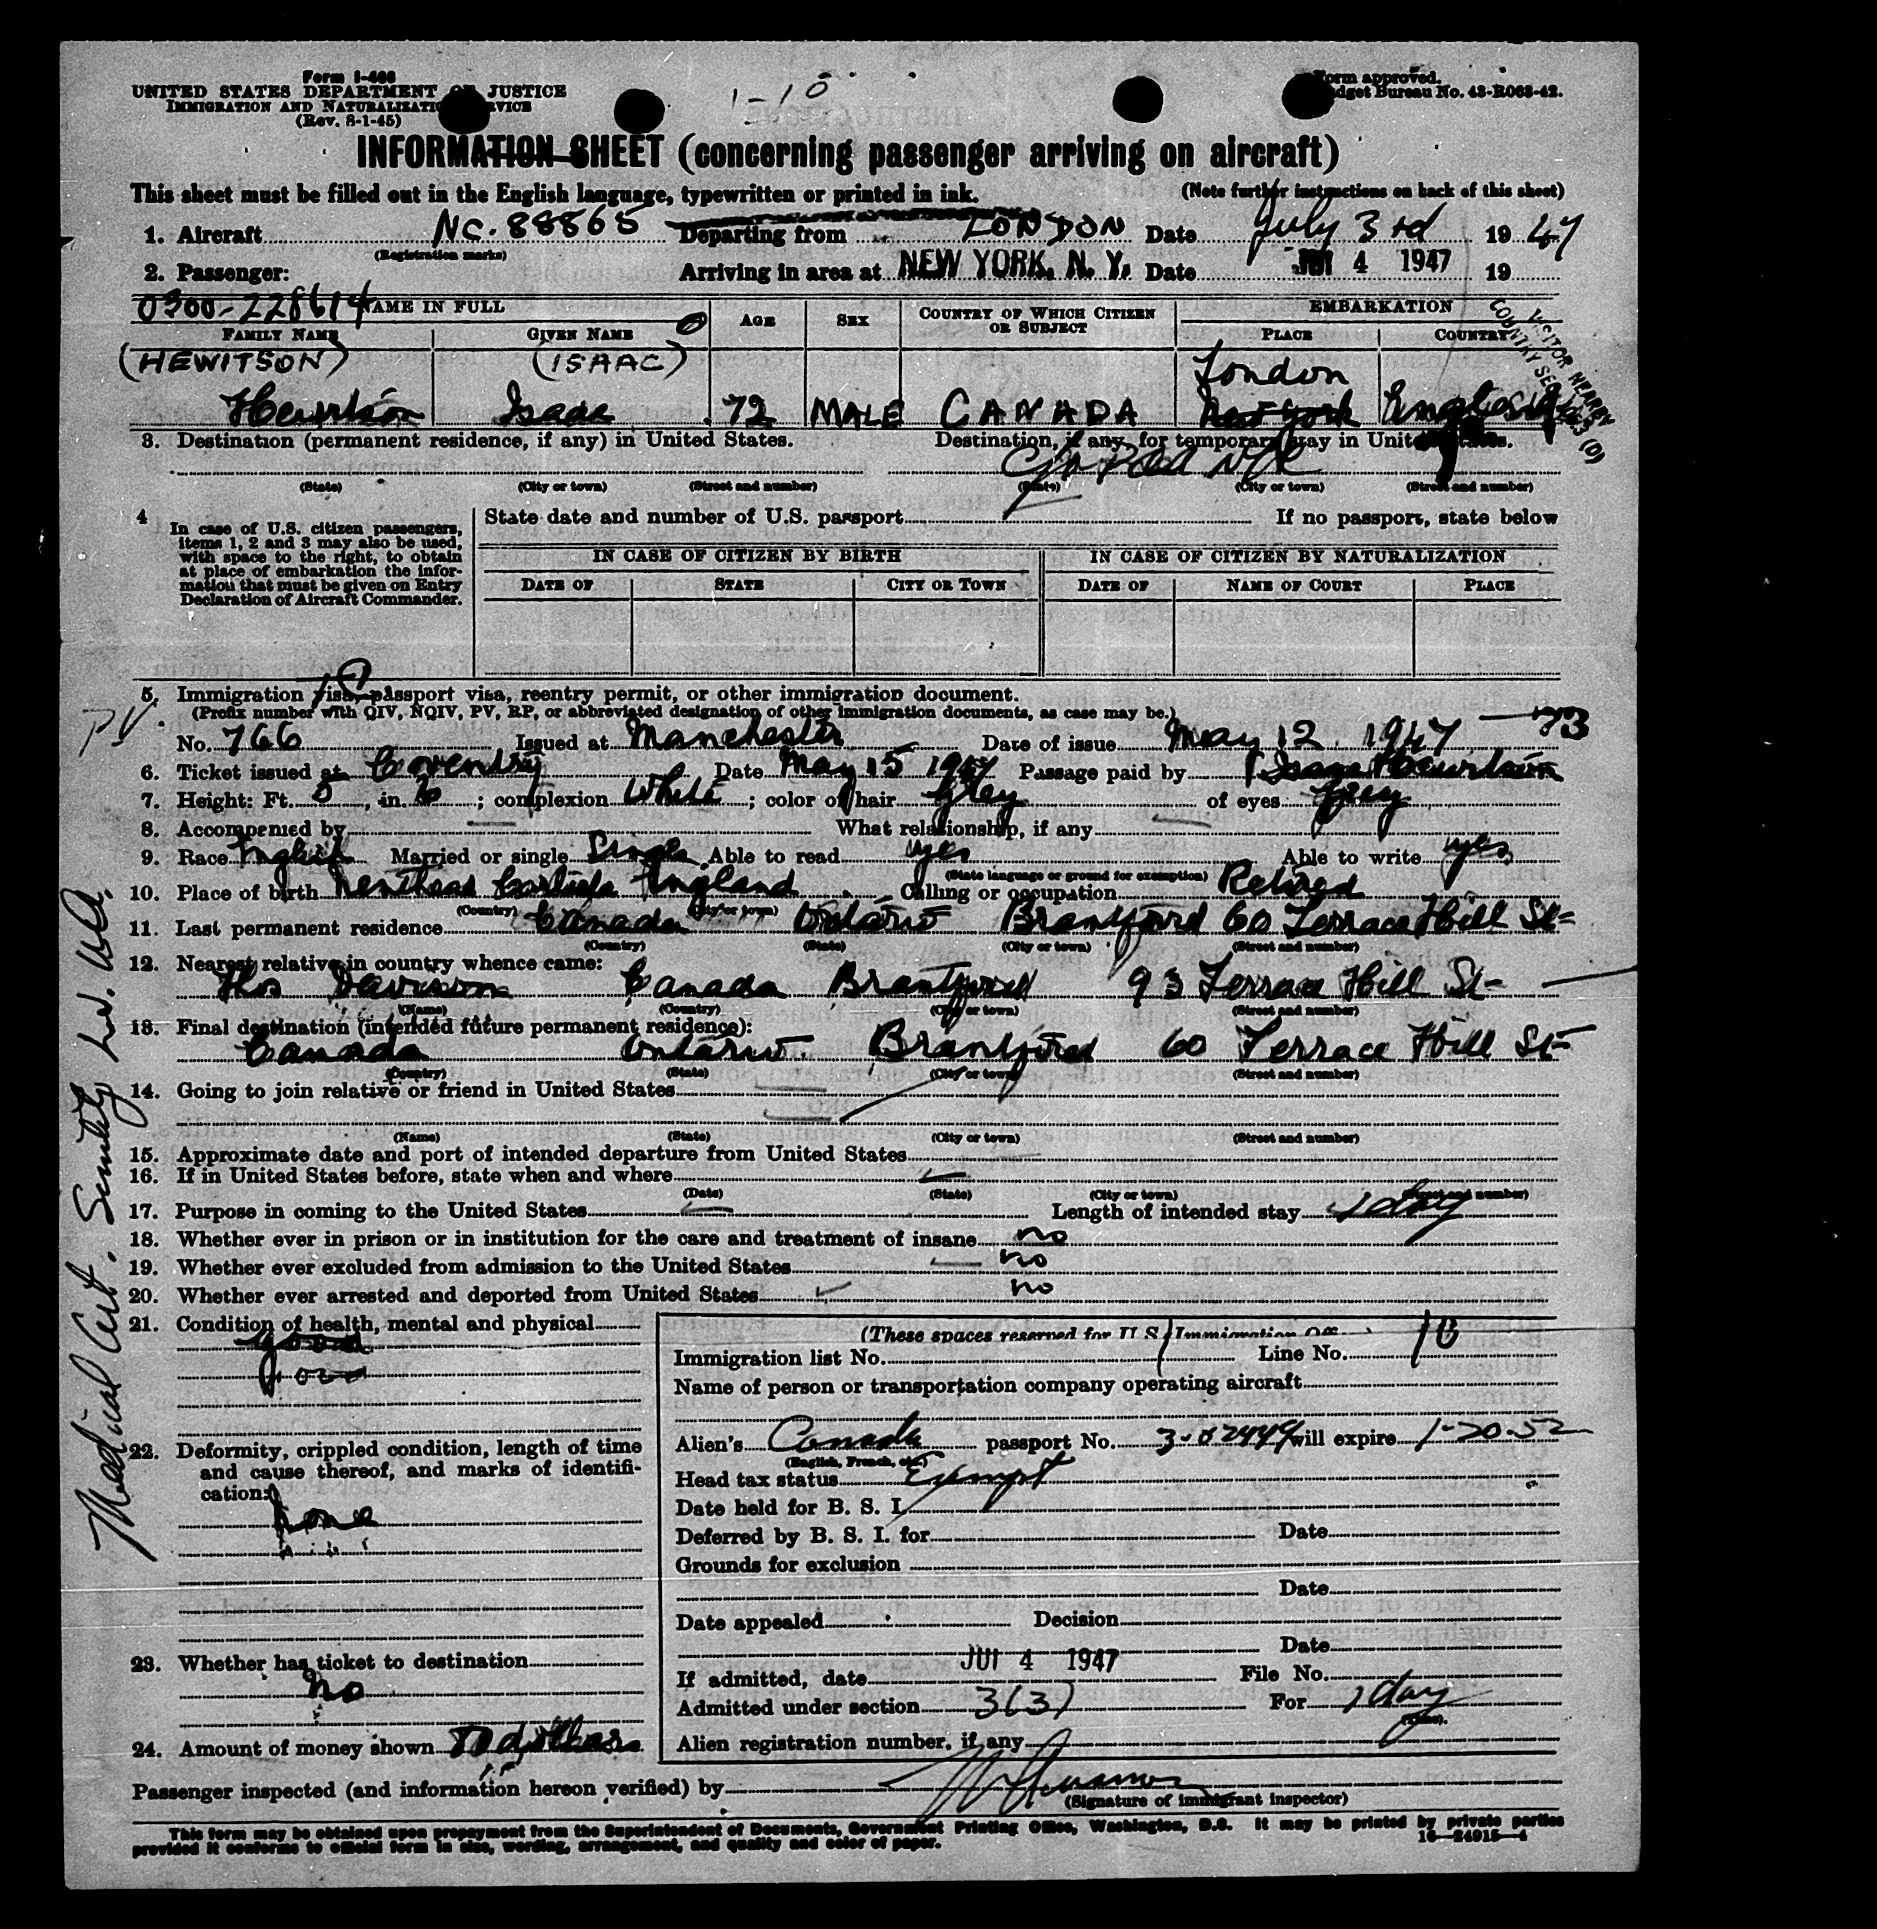 Form I-466
UNITED STATES DEPARTMENT OF JUSTICE
IMMIGRATION AND NATURALIZATION SERVICE
(Rev. 8-1-45)
1-10
Form approved.
Budget Bureau No. 43-R063-42.
INFORMATION SHEET (concerning passenger arriving on aircraft)
This sheet must be filled out in the English language, typewritten or printed in ink. (Note further instructions on back of this sheet)
1. Aircraft NC. 88865 Departing from LONDON Date July 3rd 19 47
(Registration marks)
2. Passenger: Arriving in area at NEW YORK, N. Y. Date JUL 4 1947 19
0300-228614 NAME IN FULL AGE SEX COUNTRY OF WHICH CITIZEN OR SUBJECT EMBARKATION
FAMILY NAME GIVEN NAME PLACE COUNTRY
VISITOR NEARBY
COUNTRY SEC.
(HEWITSON) (ISAAC) London
Hewitson Isaac 72 MALE CANADA New York England
3. Destination (permanent residence, if any) in United States. Destination, if any, for temporary stay in United States.
(State) (City or town) (Street and number) (State) (City or town) (Street and number)
4 In case of U.S. citizen passengers, items 1, 2 and 3 may also be used, with space to the right, to obtain at place of embarkation the information that must be given on Entry Declaration of Aircraft Commander.
State date and number of U.S. passport If no passport, state below
IN CASE OF CITIZEN BY BIRTH IN CASE OF CITIZEN BY NATURALIZATION
DATE OF STATE CITY OR TOWN DATE OF NAME OF COURT PLACE
5. Immigration visa, passport visa, reentry permit, or other immigration document.
(Prefix number with QIV, NQIV, PV, RP, or abbreviated designation of other immigration documents, as case may be.)
PV. No. 766 Issued at Manchester Date of issue May 12 1947 — 73
6. Ticket issued at Coventry Date May 15 1947 Passage paid by Isaac Hewitson
7. Height: Ft. 5, in. 6; complexion White; color of hair Grey of eyes Grey
8. Accompanied by — What relationship, if any —
9. Race English Married or single Single Able to read yes Able to write yes
(State language or ground for exemption)
10. Place of birth Carlisle England Calling or occupation Retired
(Country) (City or town)
11. Last permanent residence Canada Ontario Brantford 60 Terrace Hill St-
(Country) (State) (City or town) (Street and number)
12. Nearest relative in country whence came:
Thos Davison Canada Brantford 93 Terrace Hill St-
(Name) (Country) (City or town) (Street and number)
13. Final destination (intended future permanent residence):
Canada Ontario. Brantford 60 Terrace Hill St-
(Country) (State) (City or town) (Street and number)
14. Going to join relative or friend in United States —
(Name) (State) (City or town) (Street and number)
15. Approximate date and port of intended departure from United States
16. If in United States before, state when and where
(Date) (State) (City or town) (Street and number)
17. Purpose in coming to the United States Length of intended stay 1 day
18. Whether ever in prison or in institution for the care and treatment of insane no
19. Whether ever excluded from admission to the United States no
20. Whether ever arrested and deported from United States no
21. Condition of health, mental and physical
good
good
22. Deformity, crippled condition, length of time and cause thereof, and marks of identification:
none
23. Whether has ticket to destination
no
24. Amount of money shown 10 dollars
(These spaces reserved for U.S. Immigration Officer)
Immigration list No. 1 Line No. 10
Name of person or transportation company operating aircraft
Alien's Canada passport No. 3-02449 will expire 1-20-52
(English, French, etc.)
Head tax status Exempt
Date held for B. S. I.
Deferred by B. S. I. for Date
Grounds for exclusion
Date
Date appealed Decision
Date
If admitted, date JUL 4 1947 File No.
Admitted under section 3(3) For 1 day
(Time).
Alien registration number, if any
Passenger inspected (and information hereon verified) by
(Signature of immigrant inspector)
This form may be obtained upon prepayment from the Superintendent of Documents, Government Printing Office, Washington, D.C. It may be printed by private parties
provided it conforms to official form in size, wording, arrangement, and quality and color of paper.
16-24915-4
Medical Cert. Senility